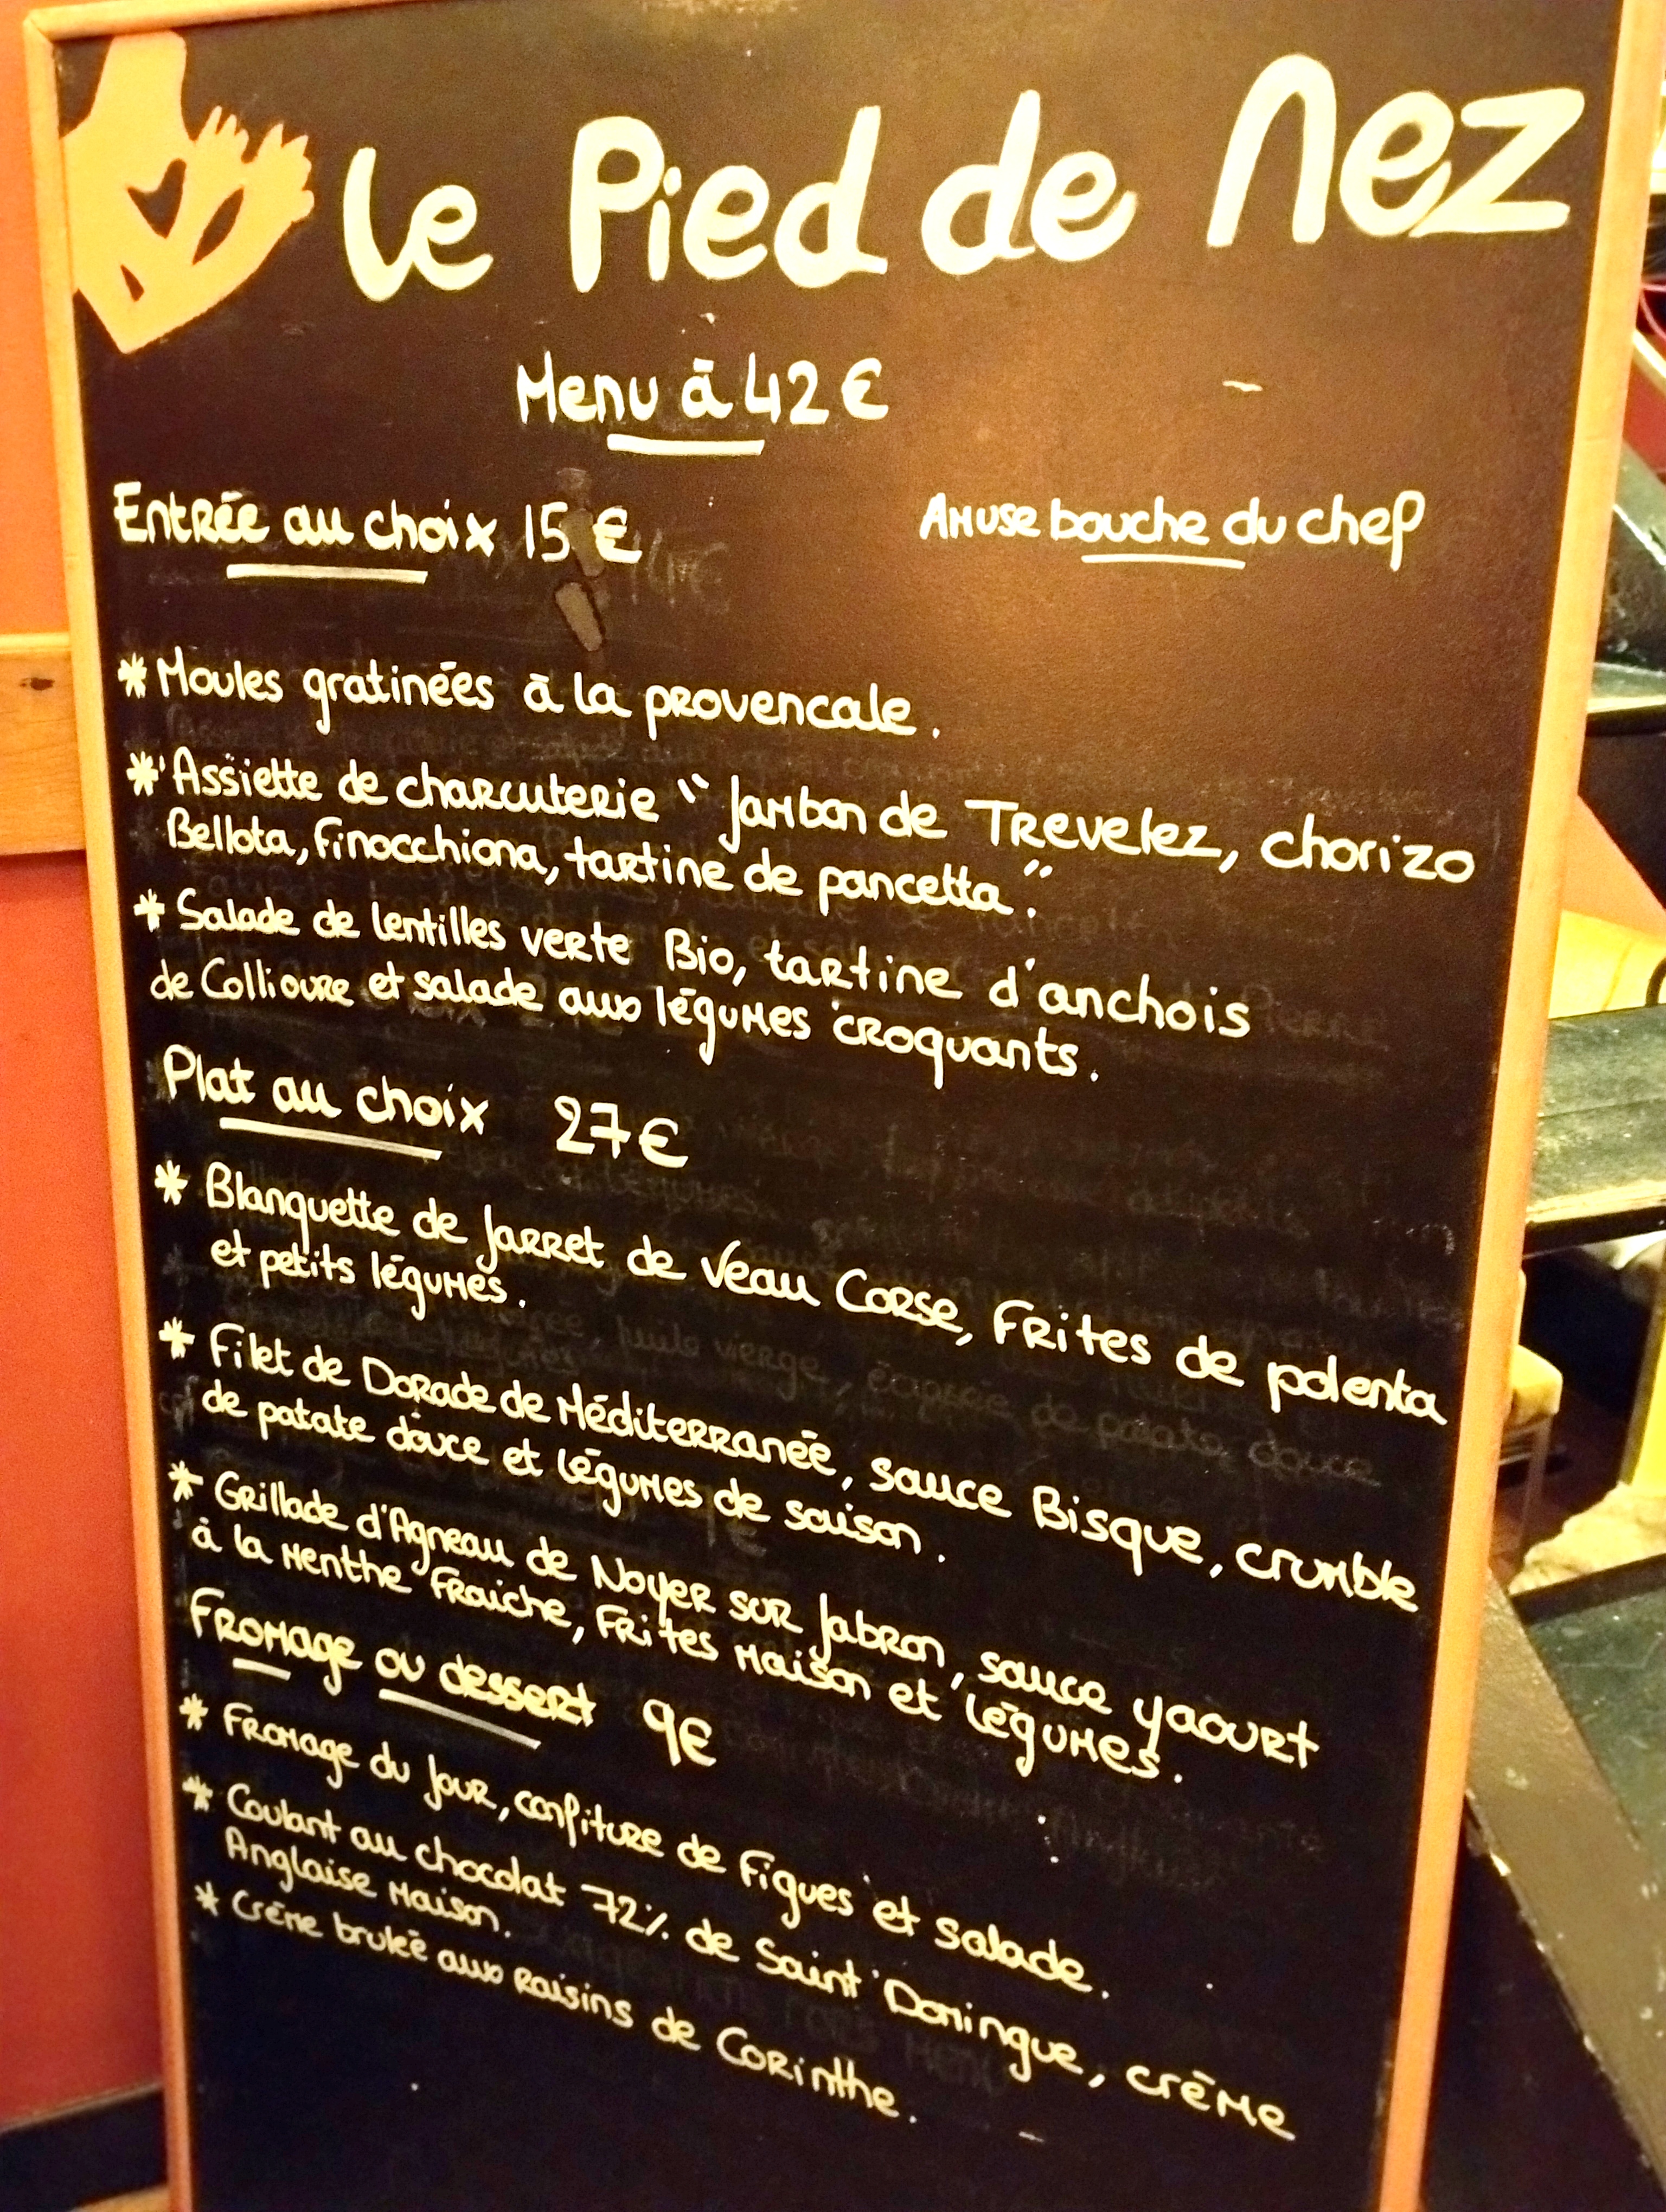 Le Pied de Nez
Menu à 42€
Entrée au choix 15 €
Amuse bouche du chef
* Moules gratinées à la provencale.
* Assiette de charcuterie " Jambon de Trevelez, chorizo
Bellota, finocchiona, tartine de pancetta".
* Salade de lentilles verte Bio, tartine d'anchois
de Collioure et salade aux légumes croquants.
Plat au choix 27€
* Blanquette de Jarret de Veau Corse, Frites de polenta
et petits légumes.
* Filet de Dorade de Méditerranée, sauce Bisque, crumble
de patate douce et légumes de saison.
* Grillade d'Agneau de Noyer sur Jabron, sauce yaourt
à la menthe Fraiche, Frites Maison et légumes.
Fromage ou dessert 9€
* Fromage du Jour, confiture de Figues et Salade.
* Coulant au chocolat 72% de Saint Domingue, crème
Anglaise Maison.
* Crème brulée aux Raisins de Corinthe.